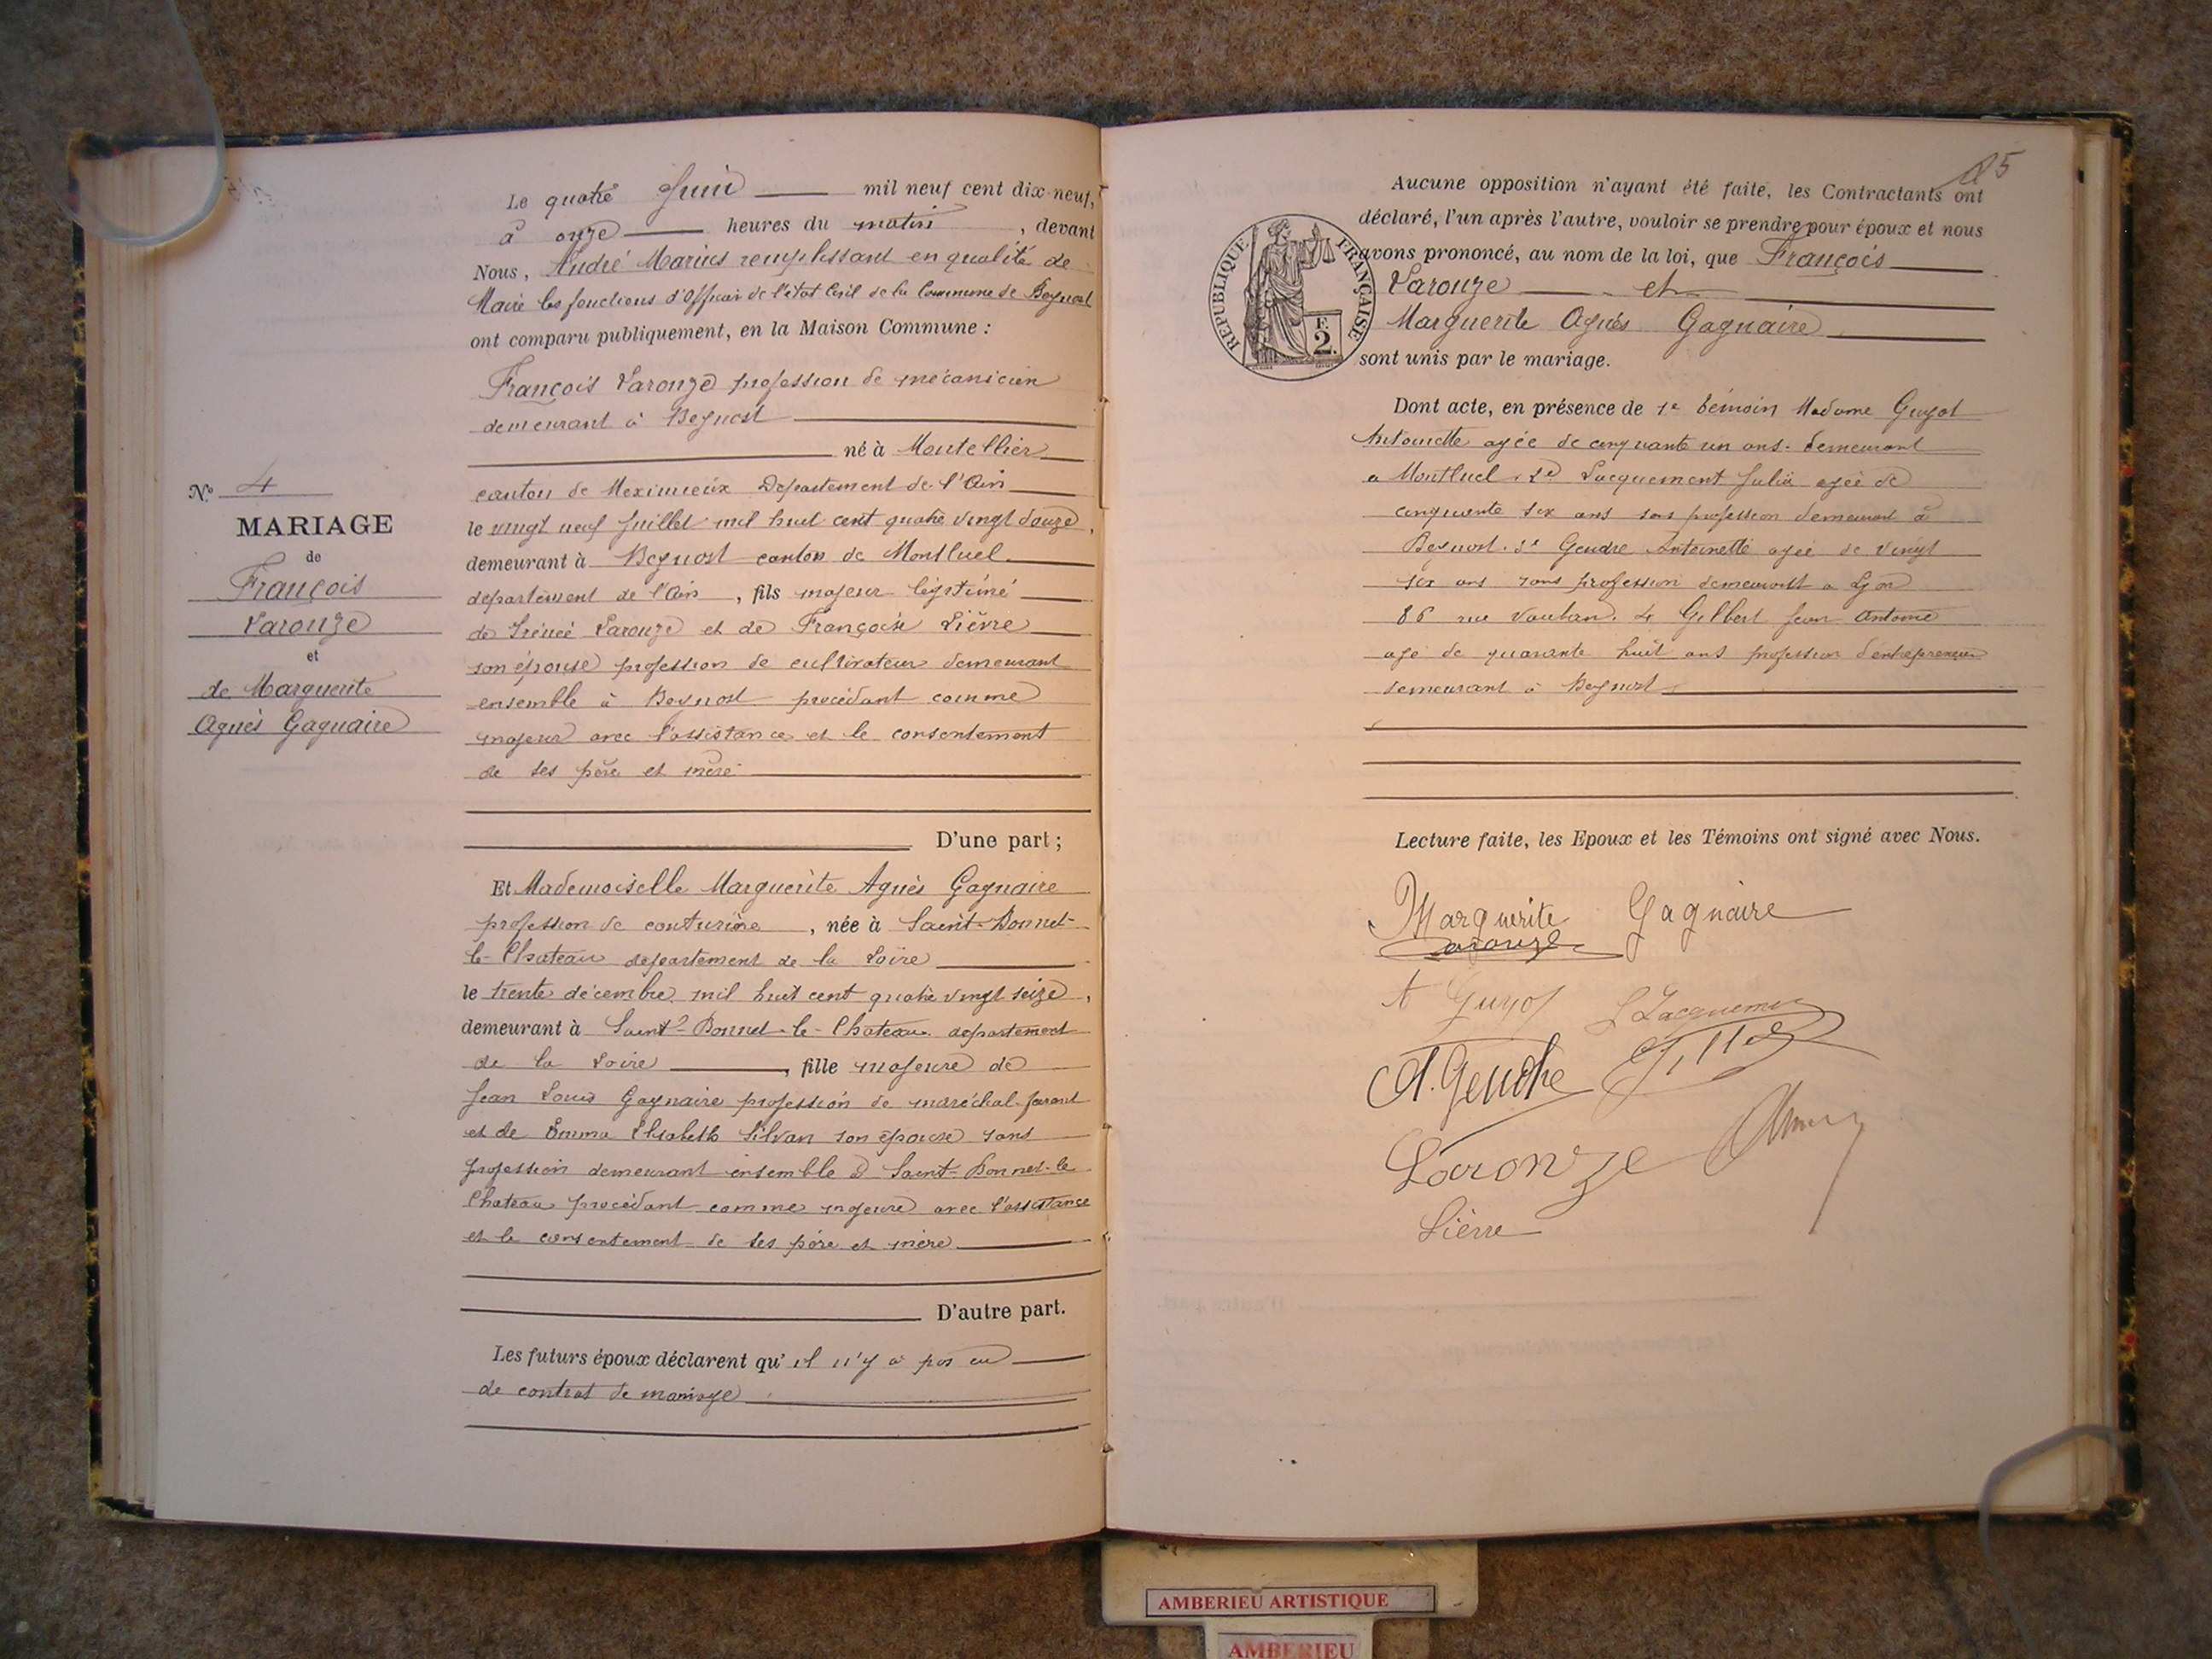 Le quatre Juin mil neuf cent dix-neuf,
à onze heures du matin, devant
Nous, André Marius remplissant en qualité de
Maire les fonctions d'Officier de l'état Civil de la Commune de Beynost
ont comparu publiquement, en la Maison Commune :
François Laronze profession de mécanicien
demeurant à Beynost
né à Montellier
canton de Meximieux Departement de l'Ain
le vingt neuf Juillet mil huit cent quatre vingt douze,
demeurant à Beynost canton de Montluel
departement de l'Ain, fils majeur légitime
de Irénée Laronze et de Françoise Lièvre
son épouse profession de cultivateurs demeurant
ensemble à Beynost procédant comme
majeur avec l'assistance et le consentement
de ses père et mère
D'une part ;
N° 4
MARIAGE
de
François
Laronze
et
de Marguerite
Agnès Gagnaire
Et Mademoiselle Marguerite Agnès Gagnaire
profession de couturière, née à Saint-Bonnet-
le-Chateau departement de la Loire
le trente décembre mil huit cent quatre vingt seize,
demeurant à Saint-Bonnet-le-Chateau departement
de la Loire, fille majeure de
Jean Louis Gagnaire profession de maréchal-ferant
et de Emma Elisabeth Silvan son épouse sans
profession demeurant ensemble à Saint-Bonnet-le
Chateau procédant comme majeure avec l'assistance
et le consentement de ses père et mère
D'autre part.
Les futurs époux déclarent qu'il n'y a pas eu
de contrat de mariage
25
Aucune opposition n'ayant été faite, les Contractants ont
déclaré, l'un après l'autre, vouloir se prendre pour époux et nous
avons prononcé, au nom de la loi, que François
Laronze et
Marguerite Agnès Gagnaire
sont unis par le mariage.
RÉPUBLIQUE FRANÇAISE
F.
2.
Dont acte, en présence de 1e témoin Madame Guyot
Antoinette agée de cinquante un ans. demeurant
a Montluel. 2e Jacquemont Julie agée de
cinquante six ans sans profession demeurant à
Beynost. 3e Gendre Antoinette agée de vingt
six ans sans profession demeurant a Lyon
86 rue Vauban. 4 Gilbert Jean Antoine
agé de quarante huit ans profession d'entrepreneur
demeurant à Beynost
Lecture faite, les Epoux et les Témoins ont signé avec Nous.
Marguerite Gagnaire
Laronze
A Guyot
A. Gendre
Laronze
Lièvre
AMBERIEU ARTISTIQUE
AMBERIEU